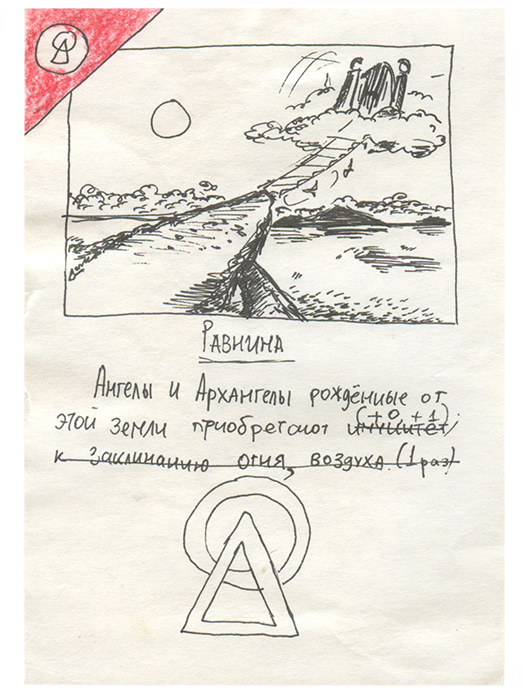 Равнина
Ангелы и Архангелы рождённые от
(+0, +1)
этой земли приобретают иммунитет
к заклинанию огня, воздуха (1 раз)